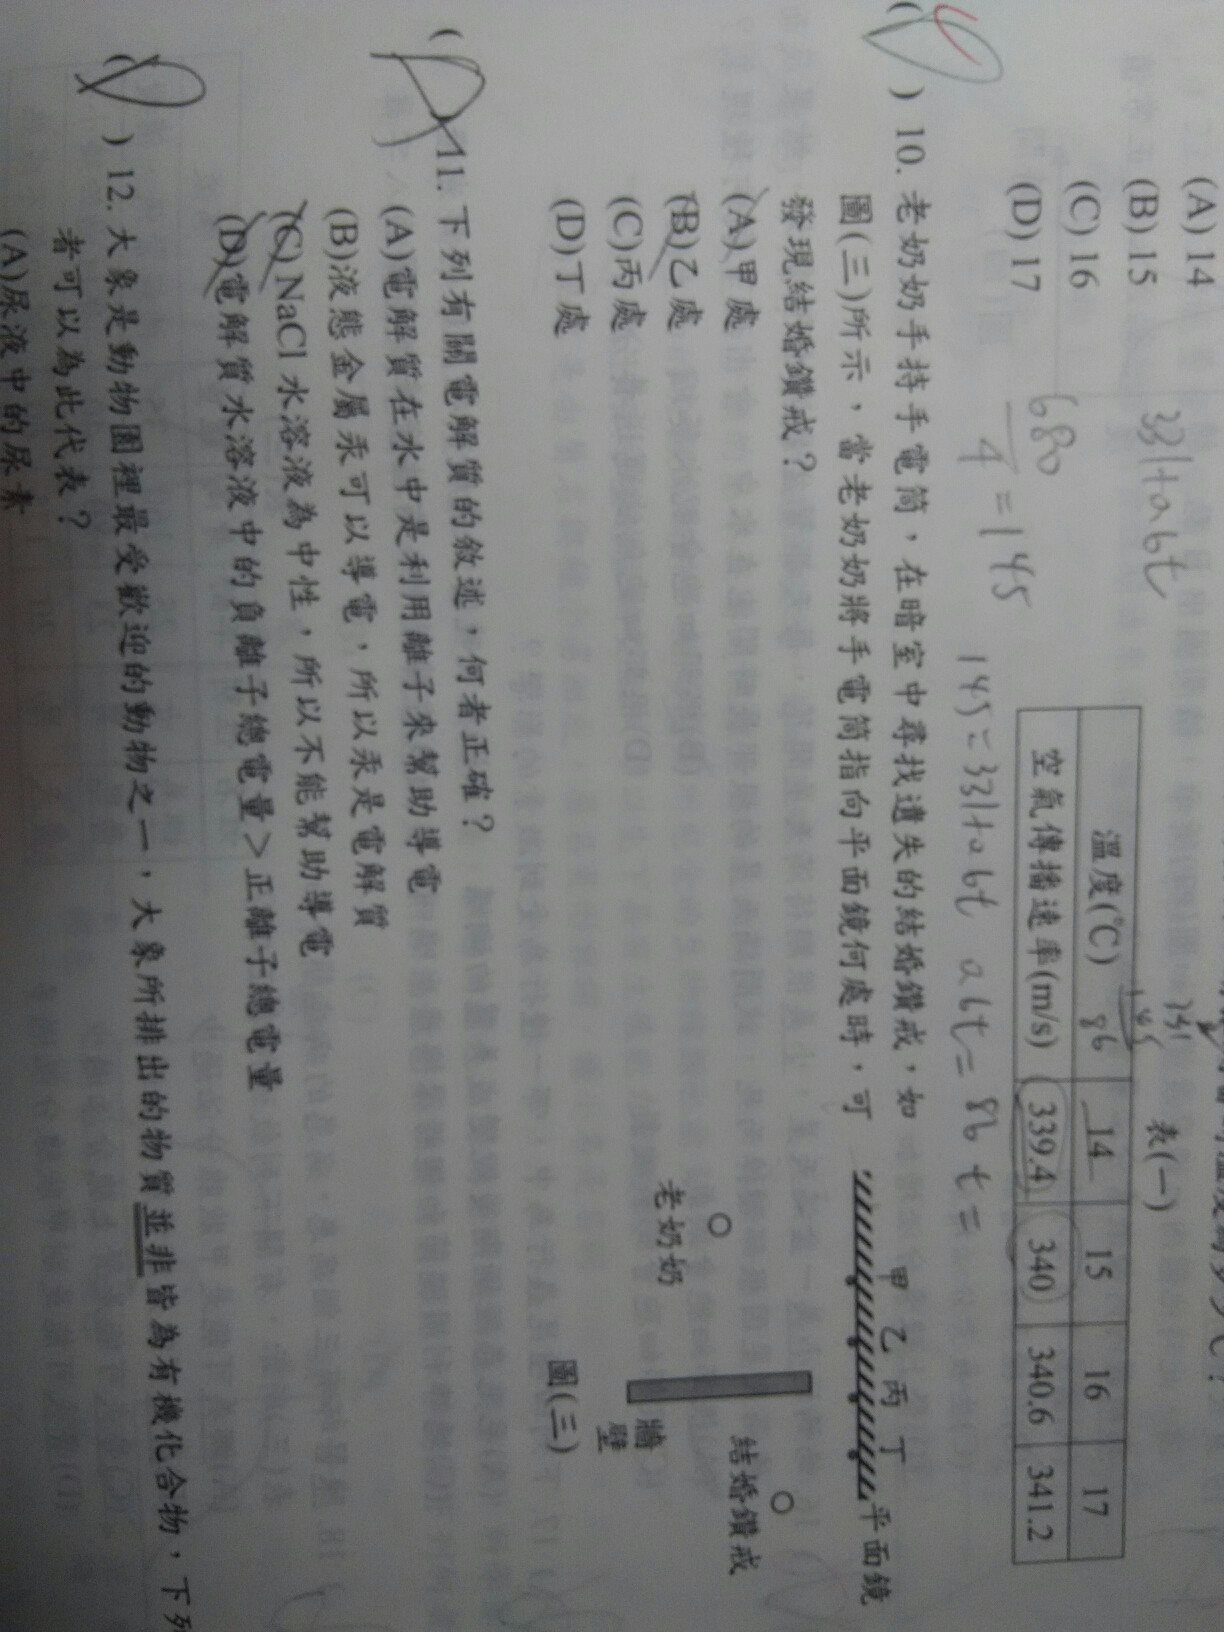 (A) 14
(B) 15
(C) 16
(D) 17
331+abt
680
4
=145
145=331+abt abt=86 t=
表(一)
溫度(℃) 14 15 16 17
空氣傳播速率(m/s) 339.4 340 340.6 341.2
331
145
86
( ) 10. 老奶奶手持手電筒，在暗室中尋找遺失的結婚鑽戒，如
圖(三)所示，當老奶奶將手電筒指向平面鏡何處時，可
發現結婚鑽戒？
(A)甲處
(B)乙處
(C)丙處
(D)丁處
甲 乙 丙 丁
平面鏡
老奶奶
結婚鑽戒
牆壁
圖(三)
(D) 11. 下列有關電解質的敘述，何者正確？
(A)電解質在水中是利用離子來幫助導電
(B)液態金屬汞可以導電，所以汞是電解質
(C) NaCl 水溶液為中性，所以不能幫助導電
(D)電解質水溶液中的負離子總電量＞正離子總電量
(D) 12. 大象是動物園裡最受歡迎的動物之一，大象所排出的物質並非皆為有機化合物，下列
者可以為此代表？
(A)尿液中的尿素